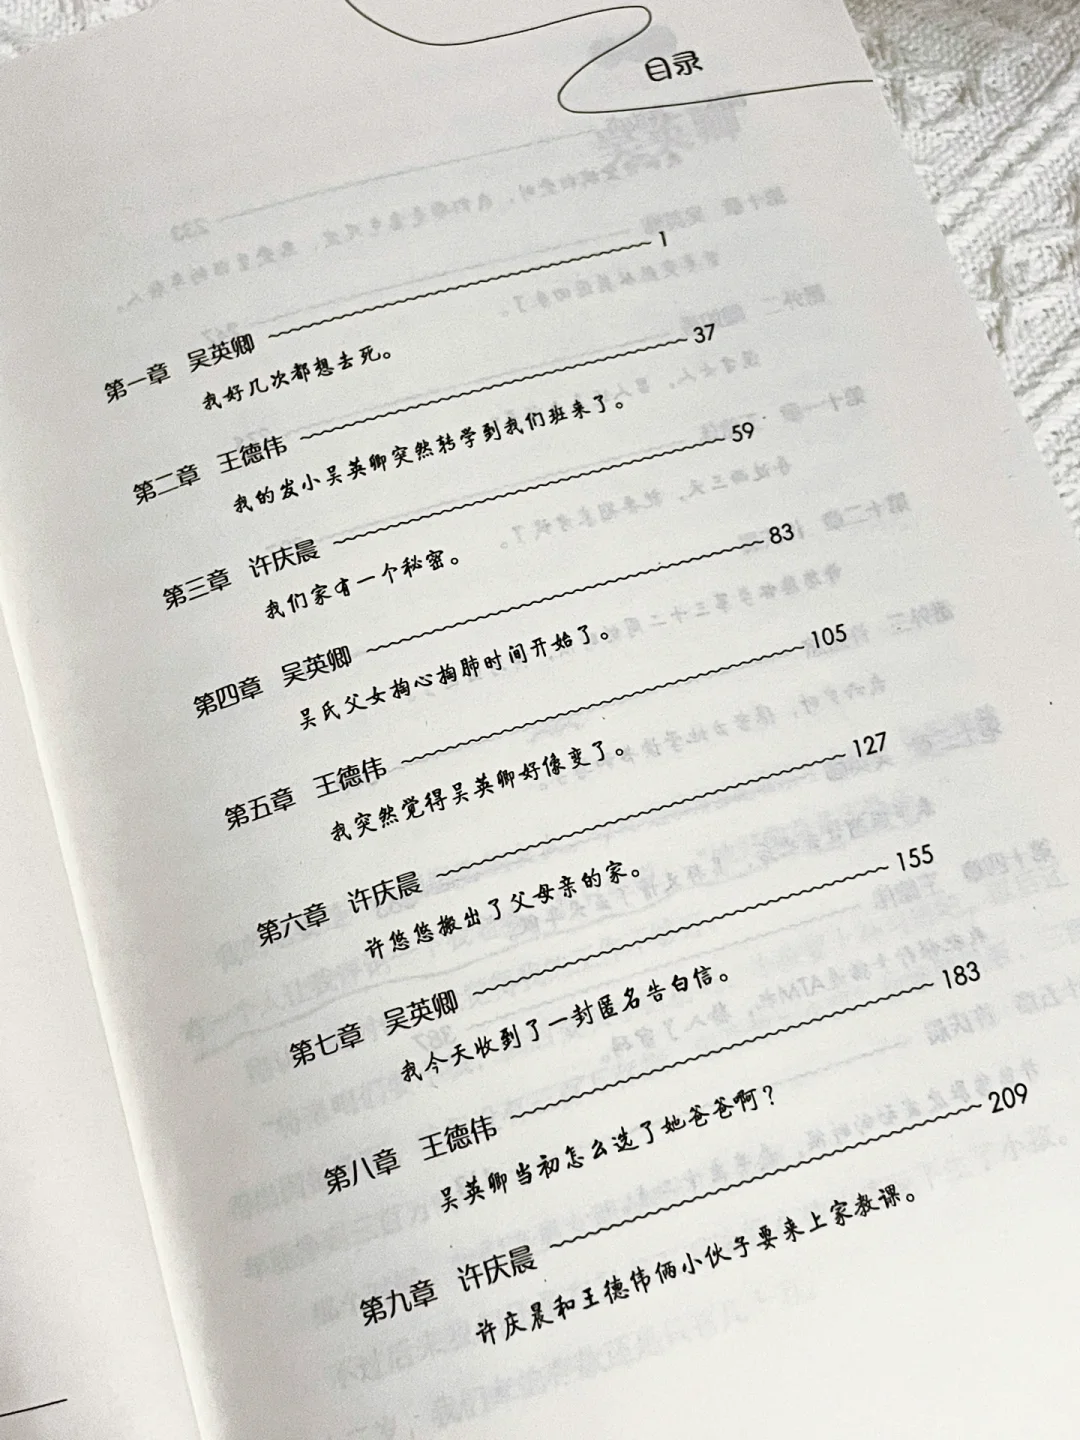 目录
第一章 吴英卿 1
我好几次都想去死。
第二章 王德伟 37
我的发小吴英卿突然转学到我们班来了。
第三章 许庆晨 59
我们家有一个秘密。
第四章 吴英卿 83
吴氏父女掏心掏肺时间开始了。
第五章 王德伟 105
我突然觉得吴英卿好像变了。
第六章 许庆晨 127
许悠悠搬出了父母亲的家。
第七章 吴英卿 155
我今天收到了一封匿名告白信。
第八章 王德伟 183
吴英卿当初怎么选了她爸爸啊？
第九章 许庆晨 209
许庆晨和王德伟俩小伙子要来上家教课。